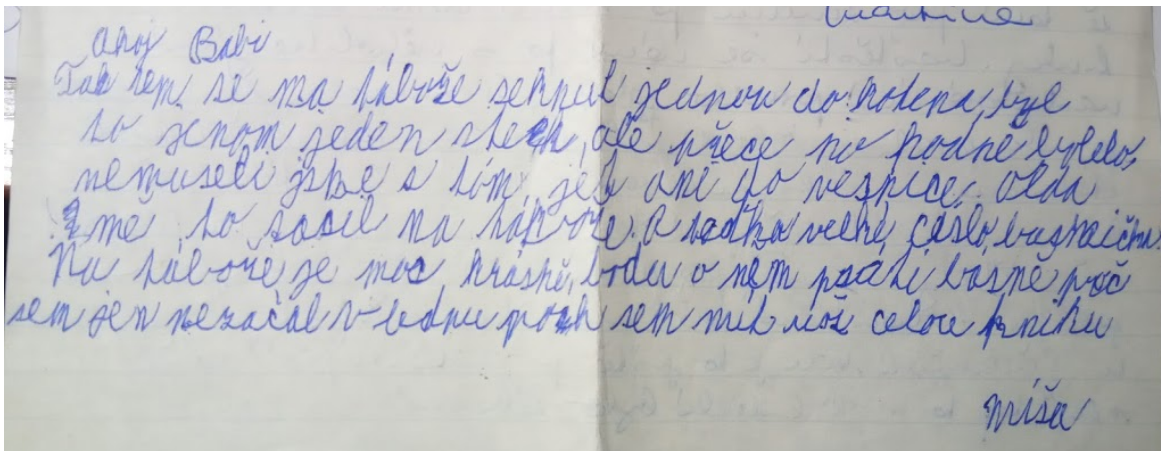 Ahoj Babi
Tak sem se na táboře seknul jednou do kolena, byl
to jenom jeden steh, ale přece no hodně bolelo,
nemuseli jsme s tím jet ani do nespice. Olda
me to na táboře a velké číslo
Na táboře je moc krásně, budu o něm psáti básně proč
sem jen nezačal v lednu moh sem mít už celou knihu
Míša